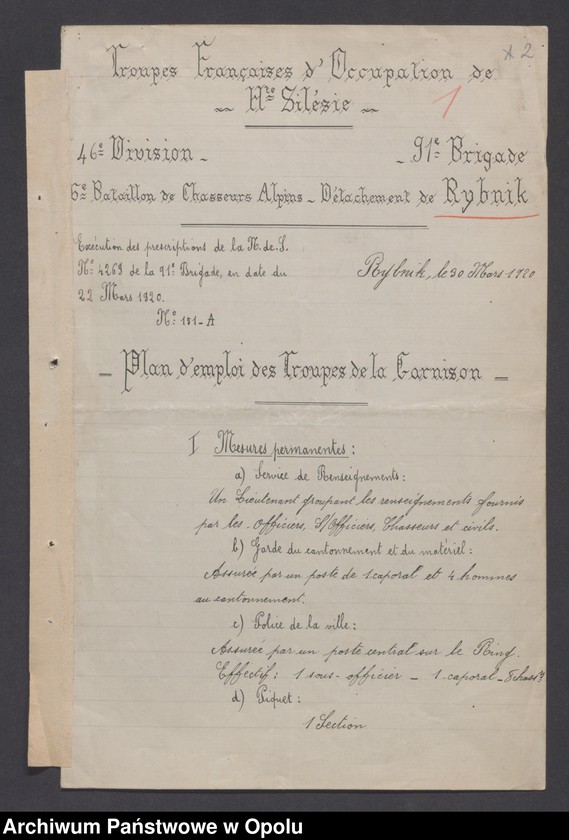 x 2
1
Troupes Françaises d'Occupation de
Hte Silésie
46e Division - - 91e Brigade
6e Bataillon de Chasseurs Alpins - Détachement de Rybnik
Exécution des prescriptions de la N.de.S.
No 4269 de la 91e Brigade, en date du
22 Mars 1920.
Rybnik, le 30 Mars 1920
No 151-A
- Plan d'emploi des Troupes de la Garnison -
I Mesures permanentes :
a) Service de Renseignements :
Un Lieutenant groupant les renseignements fournis
par les Officiers, S/Officiers, Chasseurs et civils.
b) Garde du cantonnement et du matériel :
Assurée par un poste de 1 caporal et 4 hommes
au cantonnement.
c) Police de la ville :
Assurée par un poste central sur le Ring.
Effectif : 1 sous-officier - 1 caporal - 8 chassrs
d) Piquet :
1 Section
Archiwum Państwowe w Opolu